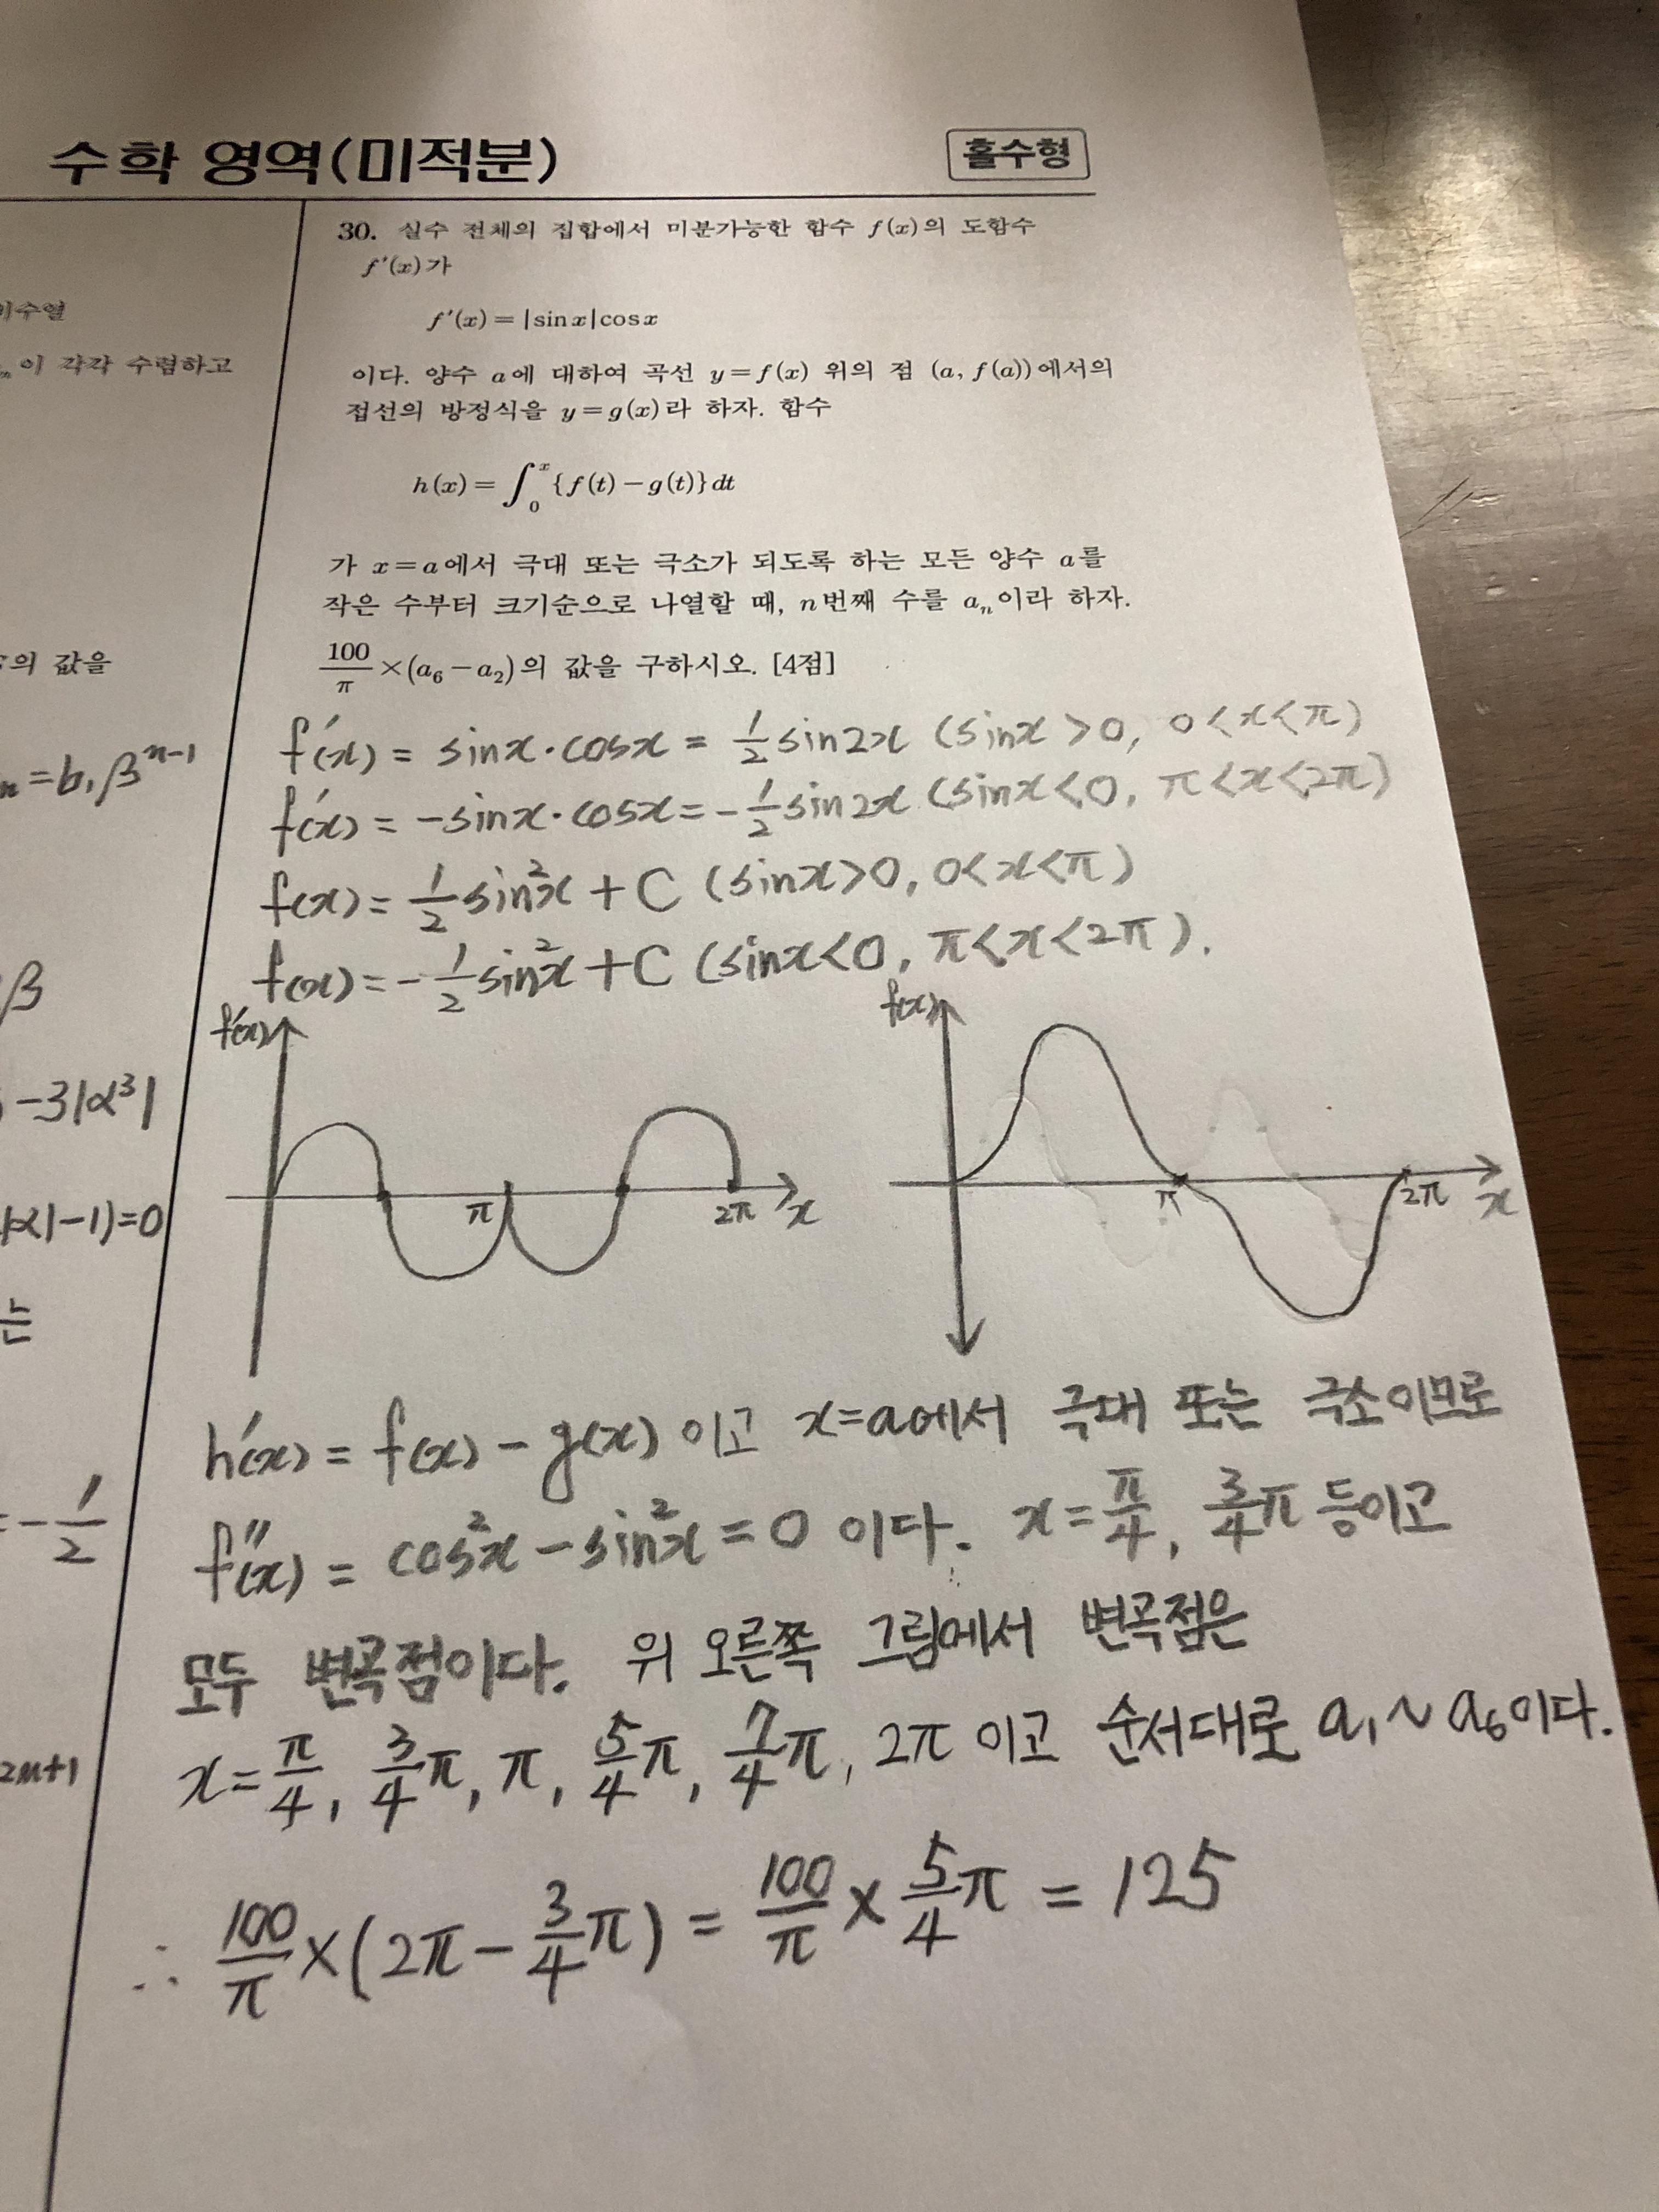 수학 영역(미적분)
홀수형
이 각각 수렴하고
의 값을
b₁β^(n-1)
β
-3|α³|
|α|-1)=0
는
=-1/2
2n+1
30. 실수 전체의 집합에서 미분가능한 함수 f(x)의 도함수
f'(x)가
f'(x)=|sinx|cosx
이다. 양수 a에 대하여 곡선 y=f(x) 위의 점 (a, f(a))에서의
접선의 방정식을 y=g(x)라 하자. 함수
h(x)=∫₀ˣ{f(t)-g(t)}dt
가 x=a에서 극대 또는 극소가 되도록 하는 모든 양수 a를
작은 수부터 크기순으로 나열할 때, n번째 수를 aₙ이라 하자.
100/π×(a₆-a₂)의 값을 구하시오. [4점]
f'(x) = sinx·cosx = 1/2 sin2x (sinx>0, 0<x<π)
f'(x) = -sinx·cosx = -1/2 sin2x (sinx<0, π<x<2π)
f(x) = 1/2 sin²x + C (sinx>0, 0<x<π)
f(x) = -1/2 sin²x + C (sinx<0, π<x<2π).
f'(x)
π
2π
x
f(x)
π
2π
x
h'(x) = f(x) - g(x) 이고 x=a에서 극대 또는 극소이므로
f''(x) = cos²x - sin²x = 0 이다. x = π/4, 3/4π 등이고
모두 변곡점이다. 위 오른쪽 그림에서 변곡점은
x = π/4, 3/4π, π, 5/4π, 7/4π, 2π 이고 순서대로 a₁~a₆이다.
∴ 100/π×(2π-3/4π) = 100/π×5/4π = 125